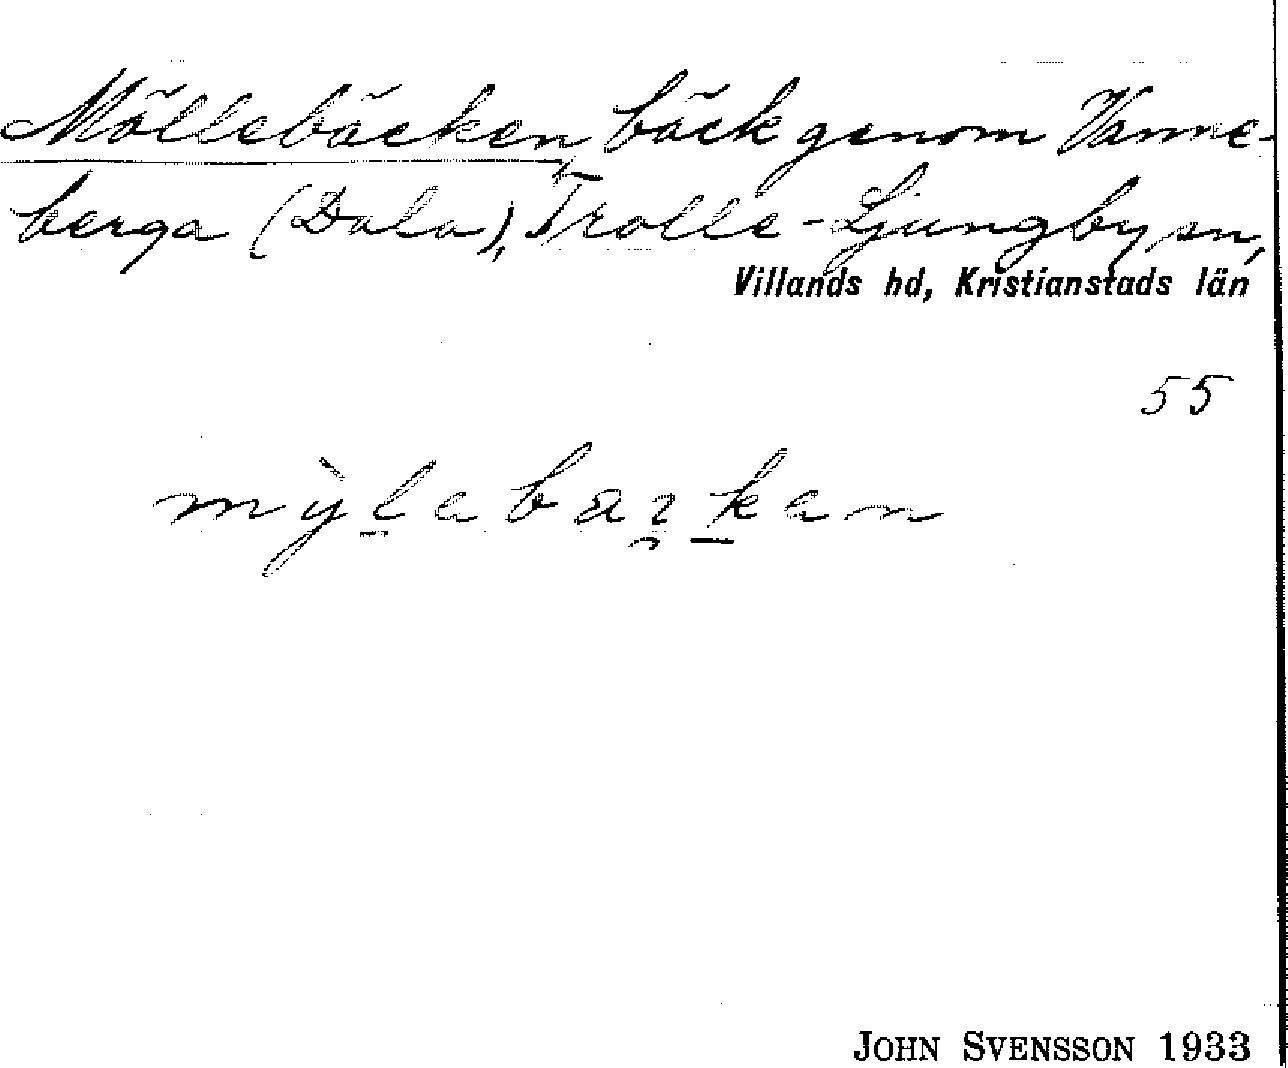 Möllebäcken, bäck genom Vanne-
berga (Dala), Trolle-Ljungby sn,
Villands hd, Kristianstads län
55
JOHN SVENSSON 1933